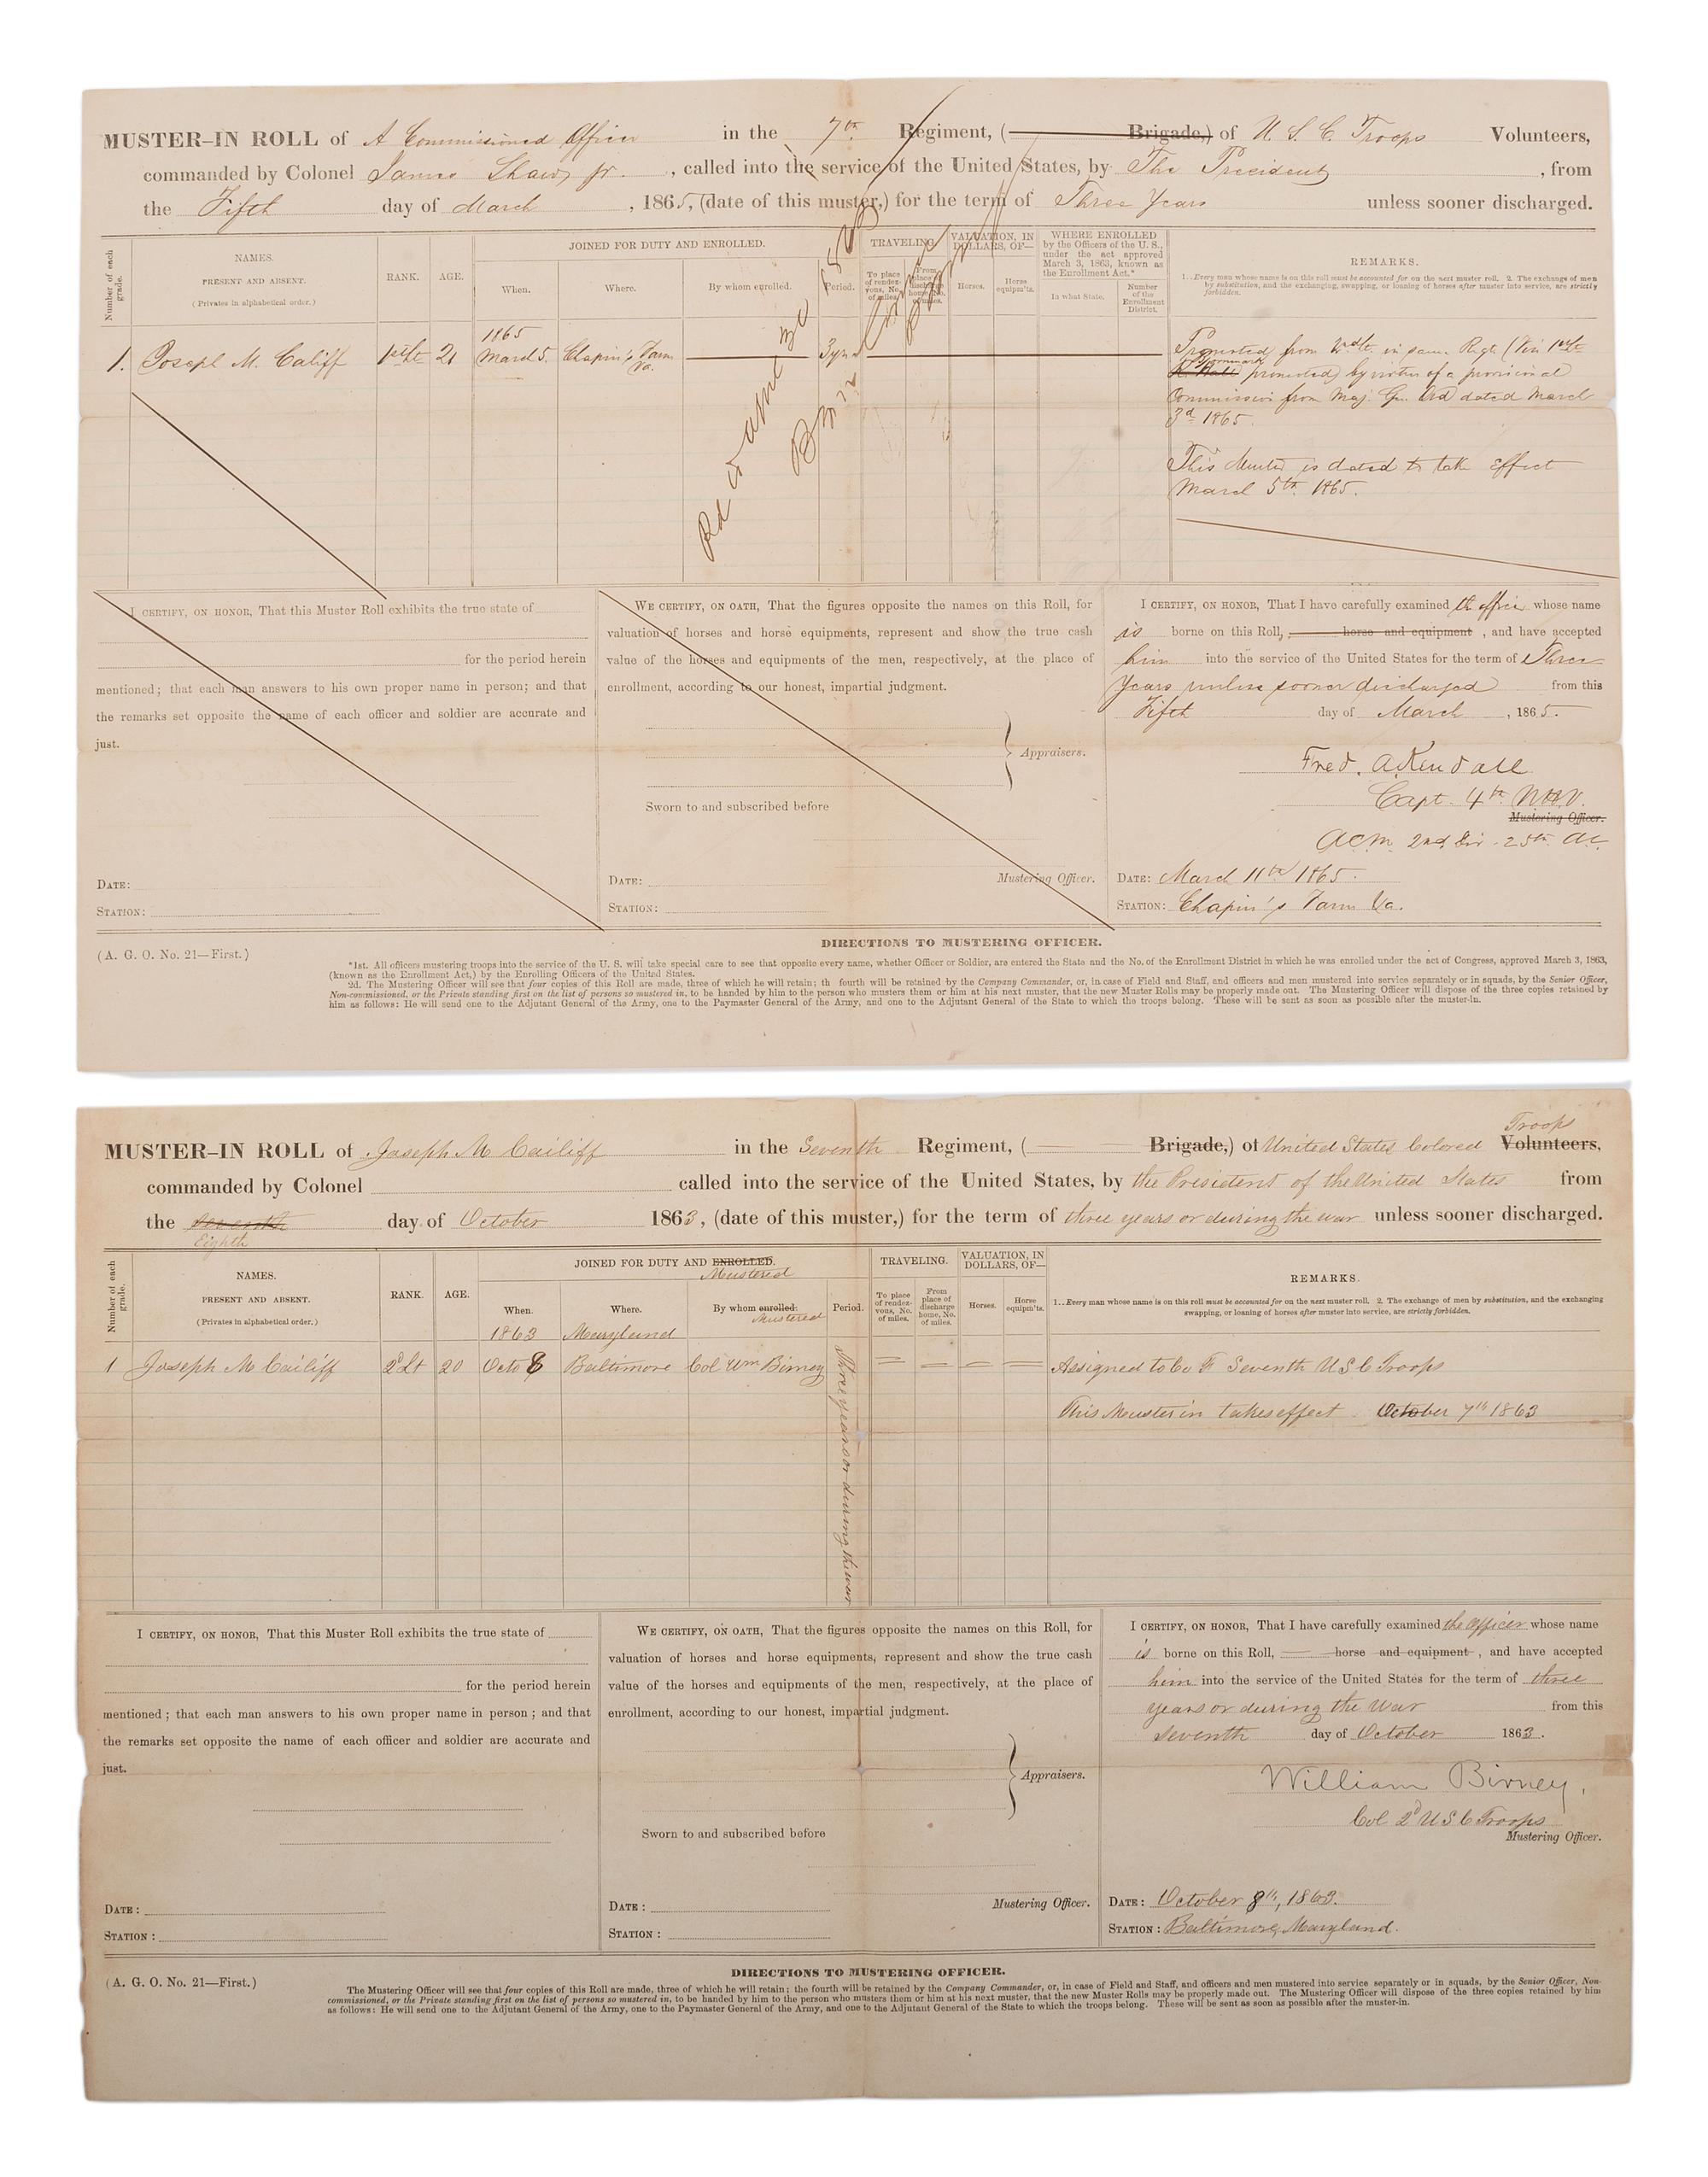 MUSTER-IN ROLL of A Commissioned Officer in the 7th Regiment, (Brigade,) of U. S. C. Troops Volunteers,
commanded by Colonel James Shaw jr. , called into the service of the United States, by The President , from
the Fifth day of March , 1865, (date of this muster,) for the term of Three Years unless sooner discharged.
Number of each grade.
NAMES.
PRESENT AND ABSENT.
(Privates in alphabetical order.)
RANK.
AGE.
JOINED FOR DUTY AND ENROLLED.
When.
Where.
By whom enrolled.
Period.
TRAVELING.
To place of rendezvous, No. of miles.
From place of discharge home, No. of miles.
VALUATION, IN DOLLARS, OF—
Horses.
Horse equipm'ts.
WHERE ENROLLED by the Officers of the U. S., under the act approved March 3, 1863, known as the Enrollment Act.*
In what State.
Number of the Enrollment District.
REMARKS.
1..Every man whose name is on this roll must be accounted for on the next muster roll. 2. The exchange of men
by substitution, and the exchanging, swapping, or loaning of horses after muster into service, are strictly
forbidden.
1865
1. Joseph M. Califf 1st Lt 21 March 5. Chapin's Farm Va. 3 yrs
Promoted from 2nd Lt. in same Regt. (Vice 1st Lt
promoted) by virtue of a provisional
Commission from Maj. Gen. Ord dated March
3d 1865.
This Muster is dated to take effect
March 5th 1865.
I CERTIFY, ON HONOR, That this Muster Roll exhibits the true state of
for the period herein
mentioned; that each man answers to his own proper name in person; and that
the remarks set opposite the name of each officer and soldier are accurate and
just.
DATE:
STATION:
WE CERTIFY, ON OATH, That the figures opposite the names on this Roll, for
valuation of horses and horse equipments, represent and show the true cash
value of the horses and equipments of the men, respectively, at the place of
enrollment, according to our honest, impartial judgment.
Appraisers.
Sworn to and subscribed before
Mustering Officer.
DATE:
STATION:
I CERTIFY, ON HONOR, That I have carefully examined the officer whose name
is borne on this Roll, horse and equipment , and have accepted
him into the service of the United States for the term of Three
Years unless sooner discharged from this
Fifth day of March , 1865.
Fred. A. Kendall
Capt. 4th N.H.V.
Mustering Officer.
A.C.M. 2nd Div. 25th A.C.
DATE: March 11th 1865.
STATION: Chapin's Farm Va.
(A. G. O. No. 21—First.)
DIRECTIONS TO MUSTERING OFFICER.
*1st. All officers mustering troops into the service of the U. S. will take special care to see that opposite every name, whether Officer or Soldier, are entered the State and the No. of the Enrollment District in which he was enrolled under the act of Congress, approved March 3, 1863,
(known as the Enrollment Act,) by the Enrolling Officers of the United States.
2d. The Mustering Officer will see that four copies of this Roll are made, three of which he will retain; th fourth will be retained by the Company Commander, or, in case of Field and Staff, and officers and men mustered into service separately or in squads, by the Senior Officer,
Non-commissioned, or the Private standing first on the list of persons so mustered in, to be handed by him to the person who musters them or him at his next muster, that the new Muster Rolls may be properly made out. The Mustering Officer will dispose of the three copies retained by
him as follows: He will send one to the Adjutant General of the Army, one to the Paymaster General of the Army, and one to the Adjutant General of the State to which the troops belong. These will be sent as soon as possible after the muster-in.
Troops
MUSTER-IN ROLL of Joseph M Cailiff in the Seventh Regiment, (Brigade,) of United States Colored Volunteers,
commanded by Colonel called into the service of the United States, by the President of the United States from
the seventh day of October 1863, (date of this muster,) for the term of three years or during the war unless sooner discharged.
Eighth
Number of each grade.
NAMES.
PRESENT AND ABSENT.
(Privates in alphabetical order.)
RANK.
AGE.
JOINED FOR DUTY AND ENROLLED.
Mustered
When.
Where.
By whom enrolled.
Mustered
Period.
TRAVELING.
To place of rendezvous, No. of miles.
From place of discharge home, No. of miles.
VALUATION, IN DOLLARS, OF—
Horses.
Horse equipm'ts.
REMARKS.
1..Every man whose name is on this roll must be accounted for on the next muster roll. 2. The exchange of men by substitution, and the exchanging
swapping, or loaning of horses after muster into service, are strictly forbidden.
1863 Maryland
1 Joseph M Cailiff 2d Lt 20 Octo 8 Baltimore Col Wm Birney
Three years or during the war
Assigned to Co F Seventh U S C Troops
This Muster in takes effect October 7th 1863
I CERTIFY, ON HONOR, That this Muster Roll exhibits the true state of
for the period herein
mentioned; that each man answers to his own proper name in person; and that
the remarks set opposite the name of each officer and soldier are accurate and
just.
DATE:
STATION:
WE CERTIFY, ON OATH, That the figures opposite the names on this Roll, for
valuation of horses and horse equipments, represent and show the true cash
value of the horses and equipments of the men, respectively, at the place of
enrollment, according to our honest, impartial judgment.
Appraisers.
Sworn to and subscribed before
Mustering Officer.
DATE:
STATION:
I CERTIFY, ON HONOR, That I have carefully examined the Officer whose name
is borne on this Roll, horse and equipment , and have accepted
him into the service of the United States for the term of three
years or during the war from this
seventh day of October 1863.
William Birney,
Col 2d U S C Troops
Mustering Officer.
DATE: October 8th, 1863.
STATION: Baltimore, Maryland.
(A. G. O. No. 21—First.)
DIRECTIONS TO MUSTERING OFFICER.
The Mustering Officer will see that four copies of this Roll are made, three of which he will retain; the fourth will be retained by the Company Commander, or, in case of Field and Staff, and officers and men mustered into service separately or in squads, by the Senior Officer, Non-
commissioned, or the Private standing first on the list of persons so mustered in, to be handed by him to the person who musters them or him at his next muster, that the new Muster Rolls may be properly made out. The Mustering Officer will dispose of the three copies retained by him
as follows: He will send one to the Adjutant General of the Army, one to the Paymaster General of the Army, and one to the Adjutant General of the State to which the troops belong. These will be sent as soon as possible after the muster-in.